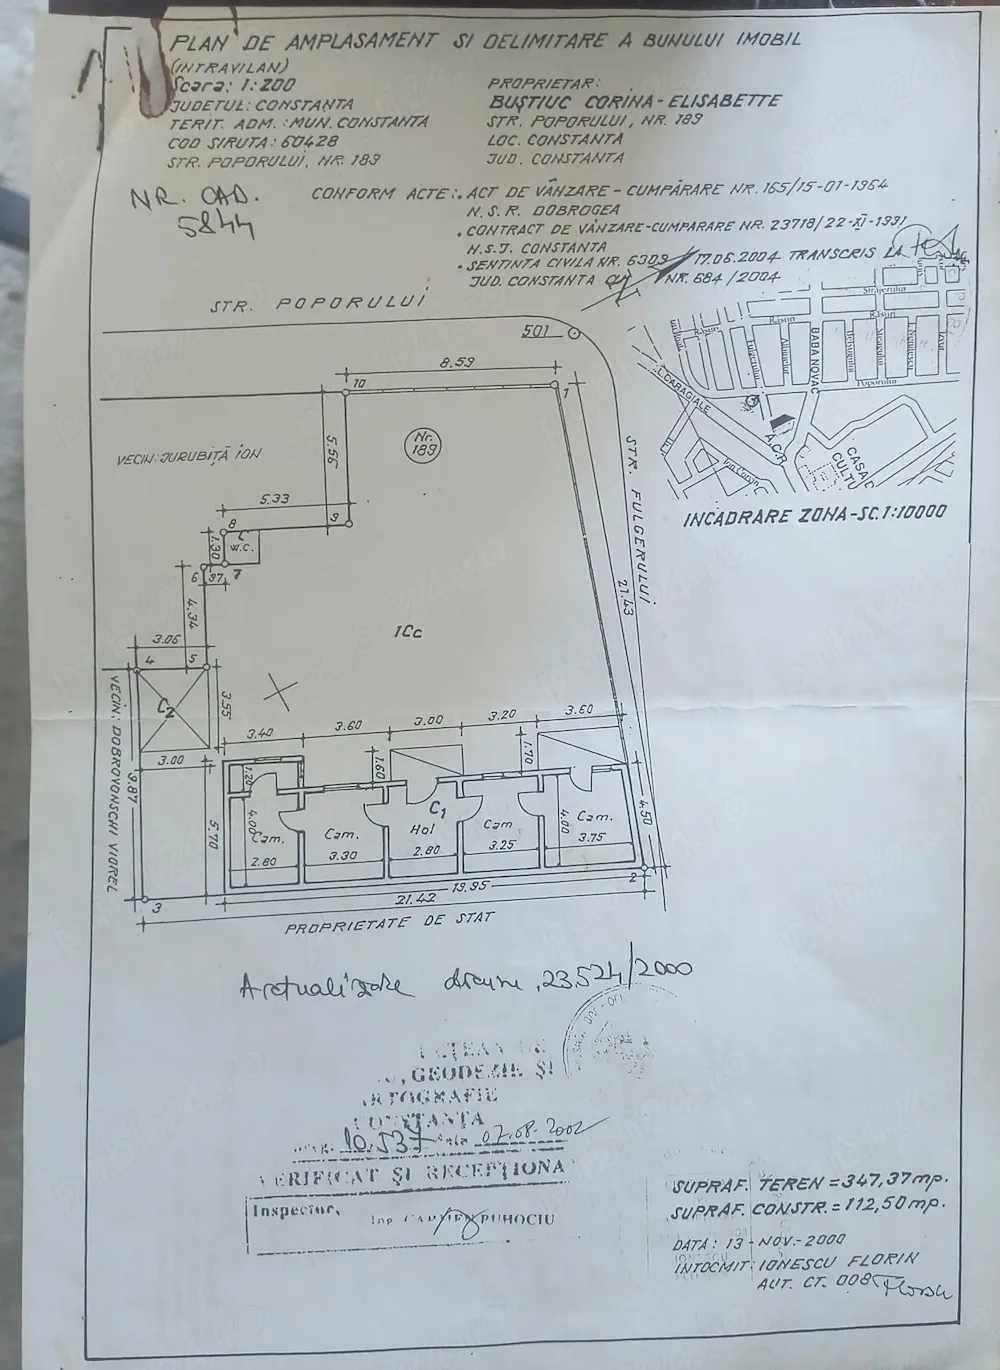 PLAN DE AMPLASAMENT SI DELIMITARE A BUNULUI IMOBIL
(INTRAVILAN)
Scara: 1:200
JUDETUL: CONSTANTA
TERIT. ADM.: MUN. CONSTANTA
COD SIRUTA: 60428
STR. POPORULUI, NR. 189
PROPRIETAR:
BUSTIUC CORINA-ELISABETTE
STR. POPORULUI, NR. 189
LOC. CONSTANTA
JUD. CONSTANTA
NR. CAD.
5844
CONFORM ACTE: . ACT DE VÂNZARE-CUMPĂRARE NR. 165/15-01-1964
N.S.R. DOBROGEA
. CONTRACT DE VÂNZARE-CUMPARARE NR. 23718/22-XI-1991
N.S.J. CONSTANTA
. SENTINTA CIVILA NR. 6309/17.06.2004 TRANSCRIS LA
JUD. CONSTANTA NR. 684/2004
STR. POPORULUI
501
8.59
10
1
Nr.
189
5.56
VECIN: JURUBIȚĂ ION
5.33
8
9
W.C.
1.30
6
.97
7
4.34
3.06
4
5
1Cc
C2
3.55
3.00
STR. FULGERULUI
21.43
VECIN: DOBROVONSCHI VIOREL
9.87
3.40
3.60
3.00
3.20
3.60
1.20
1.60
1.70
5.70
4.00
4.00
4.50
C1
Cam.
Cam.
Hol
Cam
Cam.
2.80
3.30
2.80
3.25
3.75
19.95
21.42
2
3
PROPRIETATE DE STAT
Strajerului
Rasuri
Rasuri
Rasuri
Fulgerului
BABA NOVAC
Poporului
I.L. CARAGIALE
A.C.R.
CASA D
CULTU
INCADRARE ZONA-SC. 1:10000
Actualizare 23.524/2000
GEODEZIE ȘI
CONSTANTA
10.537 07.08.2002
VERIFICAT ȘI RECEPȚIONA
Inspector,
Ing. PUHOCIU
SUPRAF. TEREN = 347,37 mp.
SUPRAF. CONSTR. = 112,50 mp.
DATA: 13-NOV.-2000
INTOCMIT: IONESCU FLORIN
AUT. CT. 008